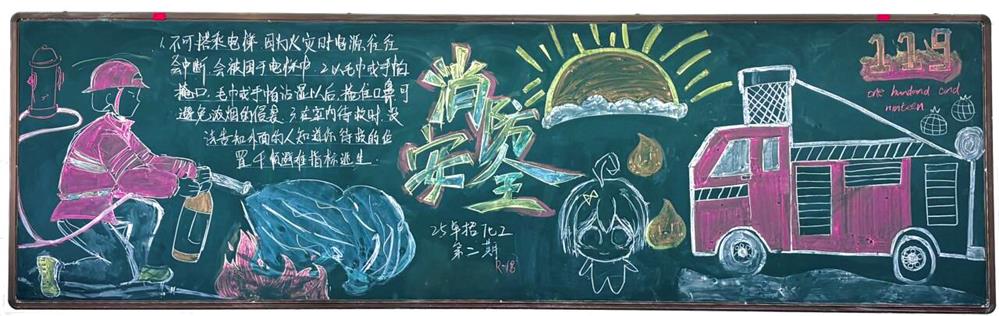 1、不可搭乘电梯，因为火灾时电源，往往
会中断，会被困于电梯中。2、以毛巾或手帕
掩口，毛巾或手帕沾湿以后，掩住口鼻可
避免浓烟的侵袭。3、在室内待救时，设
法告知外面的人知道你待救的位
置，千 避难指标逃生.
消防
安全
25年招 化工
第二期
R-18
119
one hundred and
ninteen